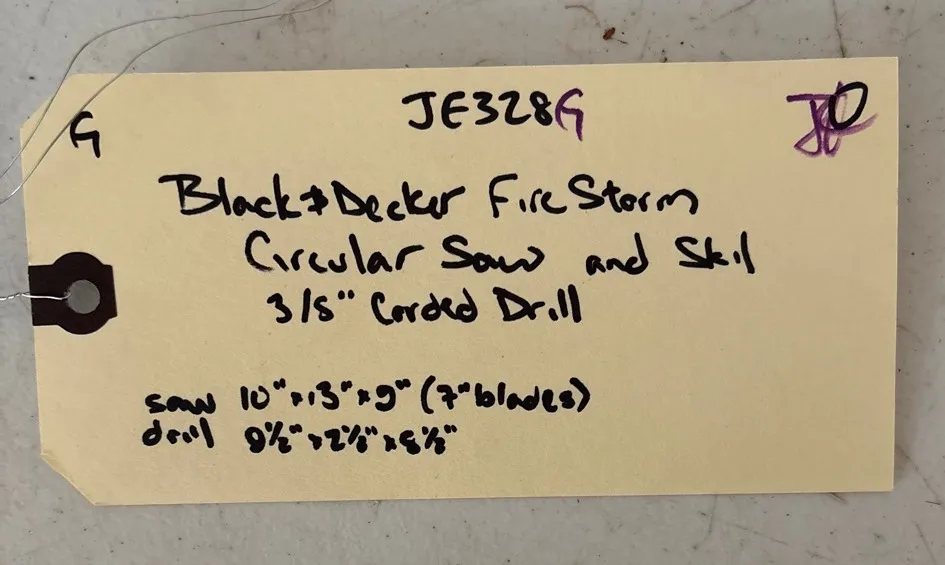 G
JE328G
Black & Decker FireStorm
Circular Saw and Skil
3/8" Corded Drill
saw 10" x 13" x 9" (7" blades)
drill 9½" x 2½" x 8½"